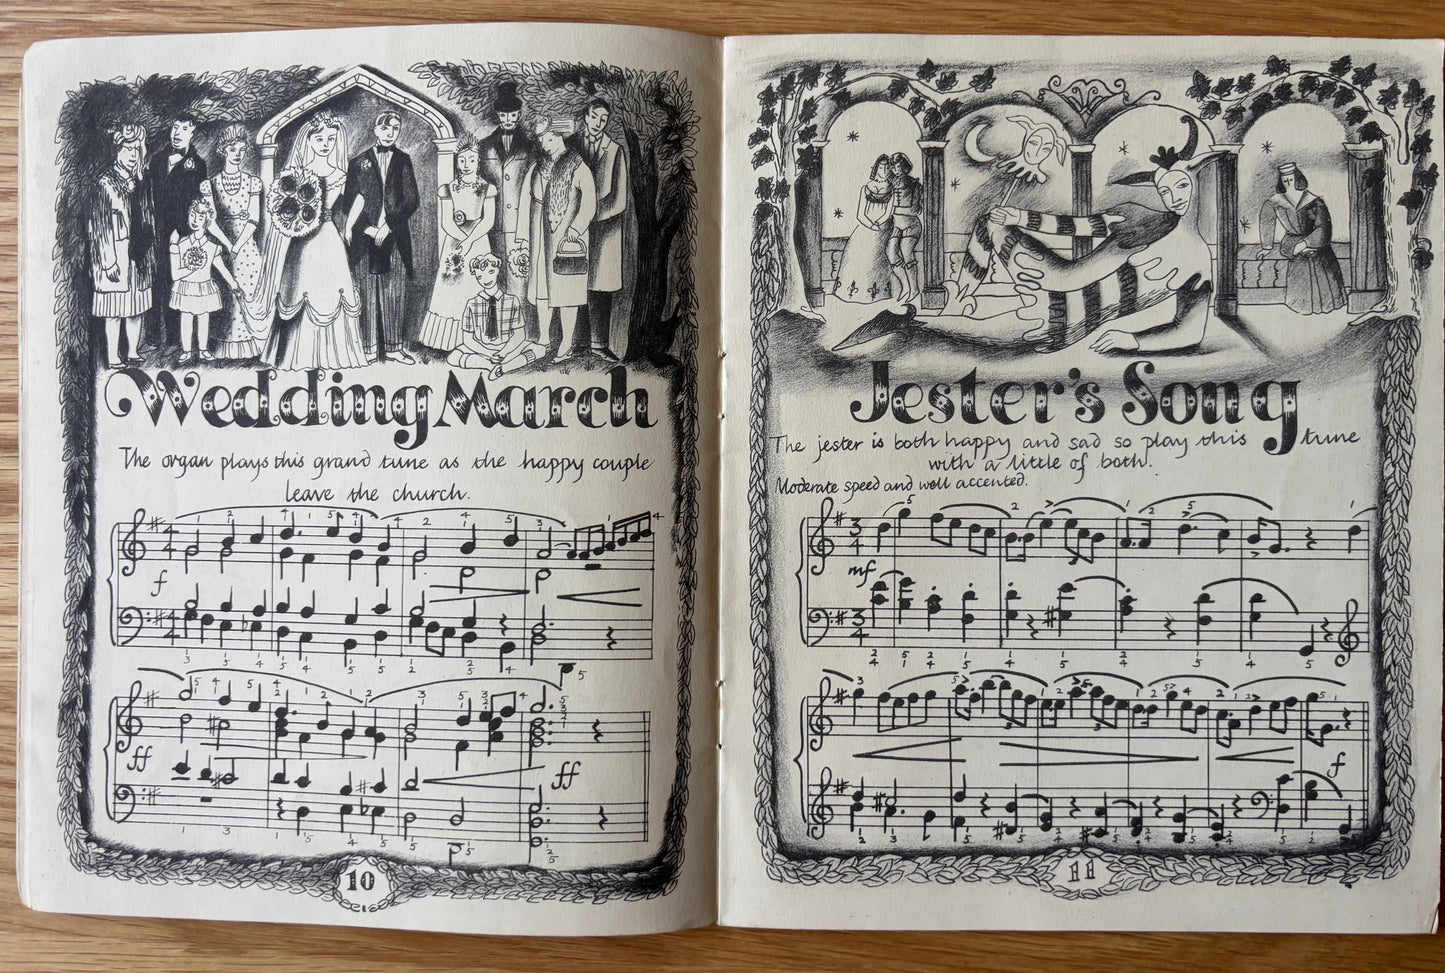 Wedding March
The organ plays this grand tune as the happy couple
leave the church.
f
ff
ff
10
Jester's Song
The jester is both happy and sad so play this tune
with a little of both.
Moderate speed and well accented.
mf
f
11